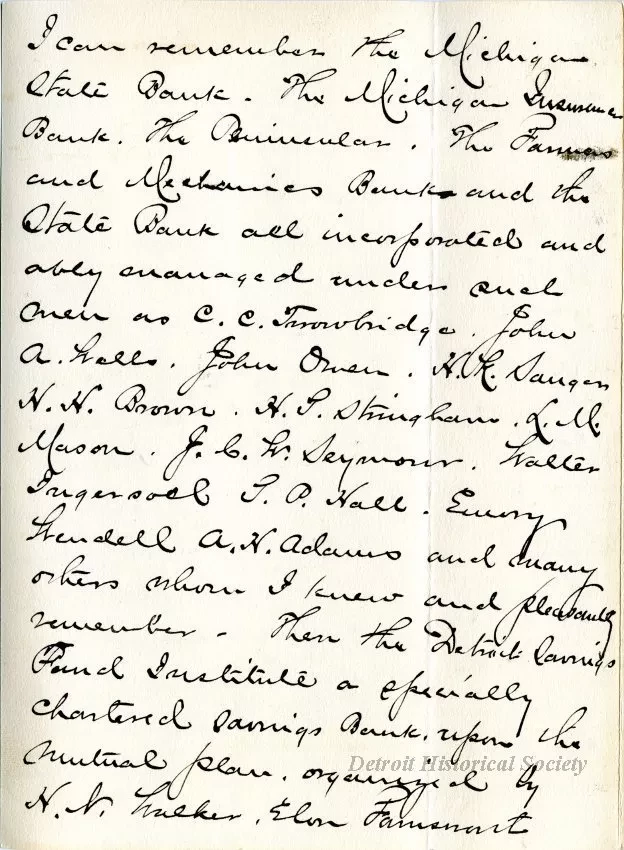 I can remember the Michigan
State Bank. The Michigan Insurance
Bank. The Peninsular. The Farmers
and Mechanics Bank and the
State Bank all incorporated and
ably managed under such
men as C. C. Trowbridge. John
A. Wells. John Owen. H. K. Sanger
H. H. Brown. H. P. Stringham. L. M.
Mason. J. C. W. Seymour. Walter
Ingersoll T. P. Hall. Emory
Wendell A. H. Adams and many
others whom I knew and pleasantly
remember. Then the Detroit Savings
Fund Institute a specially
chartered Savings Bank, upon the
mutual plan. organized by
Detroit Historical Society
H. N. Walker, Elon Farnsworth